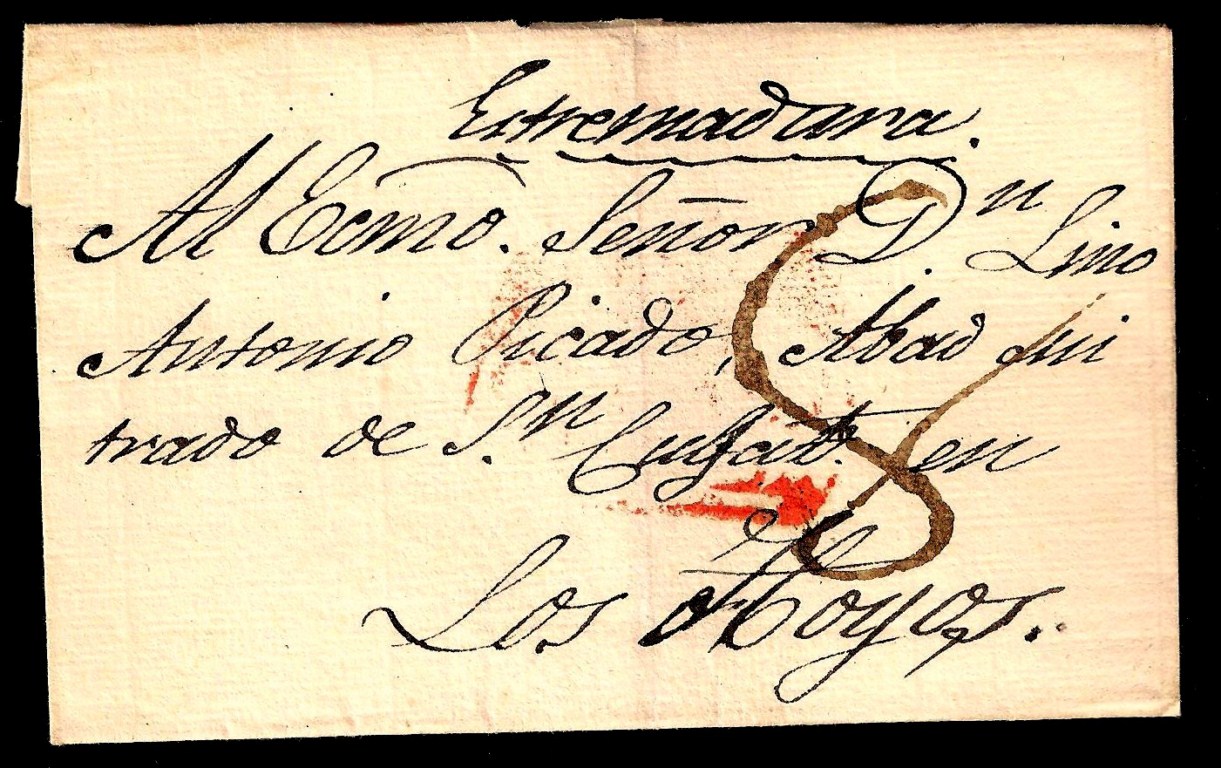 Estremadura.
Al Ecmo. Señor Dn Lino
Antonio Picado, Abad mi
trado de Sn Culgat. en
Los Hoyos.
8